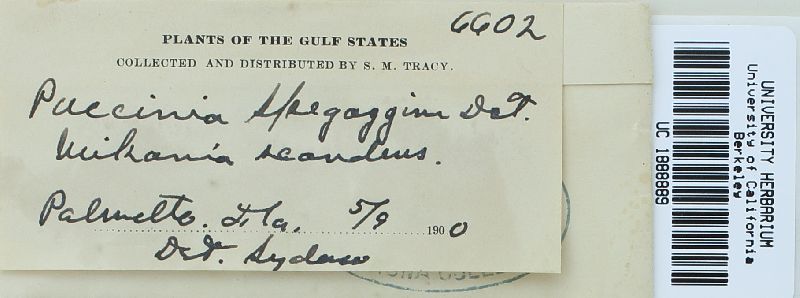 6602
PLANTS OF THE GULF STATES
COLLECTED AND DISTRIBUTED BY S. M. TRACY.
Puccinia Spegazzini DeT.
Mikania scandens.
Palmetto. Fla. 5/9 1900
Det. Sydow
UNIVERSITY HERBARIUM
University of California
Berkeley
UC 1888889